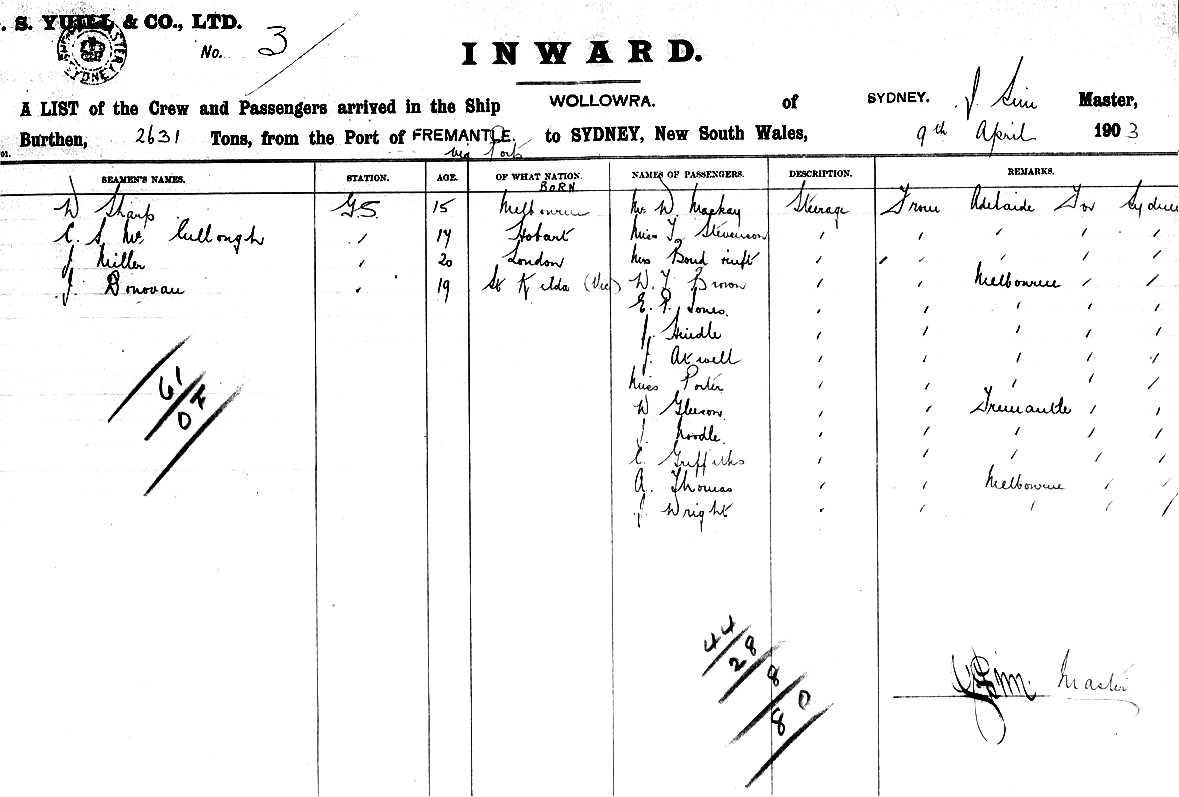 . S. YUILL & CO., LTD.
No. 3
INWARD.
A LIST of the Crew and Passengers arrived in the Ship WOLLOWRA. of SYDNEY. J. Sim Master,
Burthen, 2631 Tons, from the Port of FREMANTLE. to SYDNEY, New South Wales, 9th April 1903
via Ports
SEAMEN'S NAMES. STATION. AGE. OF WHAT NATION. NAMES OF PASSENGERS. DESCRIPTION. REMARKS.
BORN
W Sharp G.S. 15 Melbourne Mr. W. Mackay Steerage From Adelaide For Sydney
C. S. Mc Cullough " 17 Hobart Miss T. Stevenson " " " " "
J Miller " 20 London Mrs Bond " " " " "
J. Donovan " 19 St Kilda (Vic) W. T. Brown " " Melbourne " "
E. P. Jones. " " " " "
J. Hindle " " " " "
J. Atwell " " " " "
Miss Porter " " " " "
W Gleeson. " " Fremantle " "
J. Noodle. " " " " "
C. Griffiths " " " " "
A. Thomas " " Melbourne " "
J. Wright " " " " "
61
OF
44
28
8
80
J Sim. Master